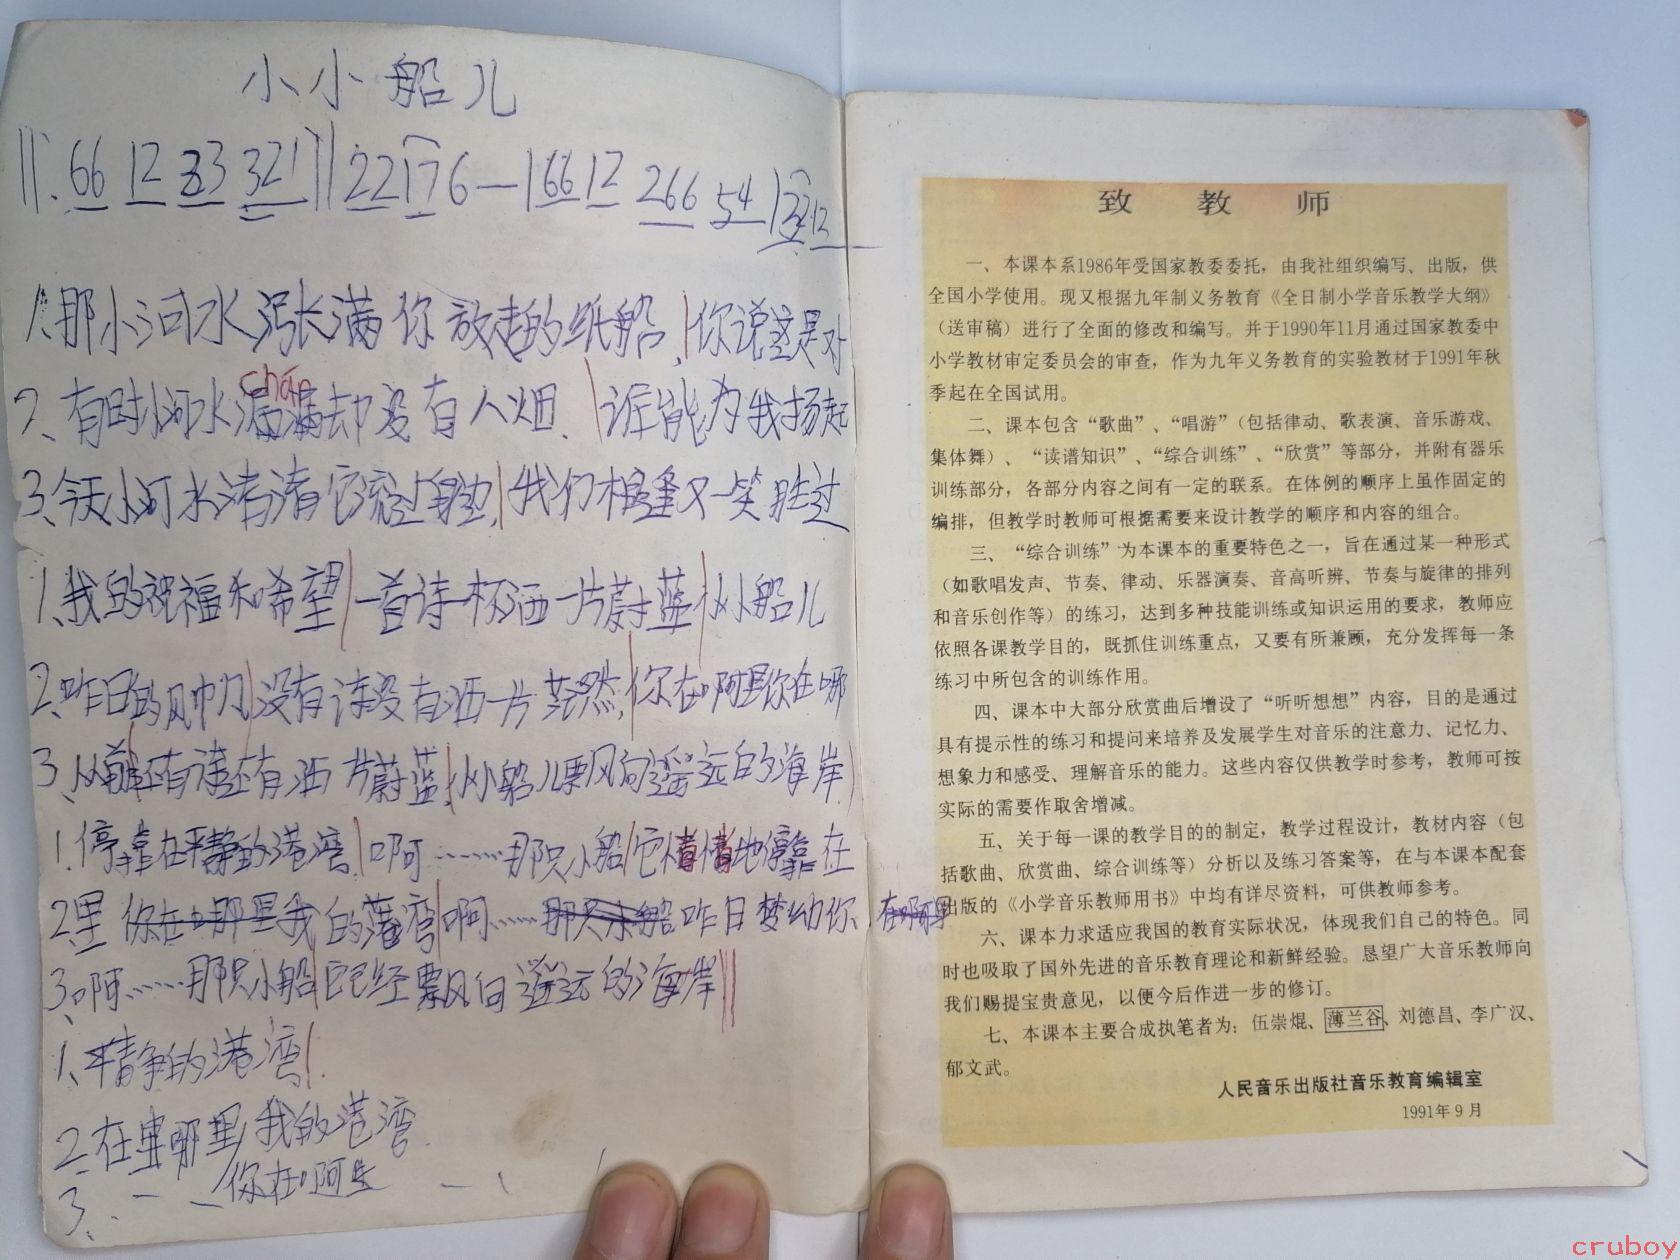 小小船儿
‖: 66 12 33 321 ‖ 22 17 6 — | 66 12 266 54 |
1、那小河水涨满你放走的纸船,你说这是对
2、有时小河水满满却没有人烟、谁能为我扬起
chán
3、今天小河水清清它流过身边,我们相逢又一笑胜过
1、我的祝福和希望一首诗一杯酒一片蔚蓝小小船儿
2、昨日的风帆没有诗没有酒一片茫然,你在啊里你在哪
3、从前还有诗还有酒一片蔚蓝小小船儿飘向遥远的海岸
1、停靠在平静的港湾啊……那只小船它悄悄地停靠在
2、里 你在那里我的港湾啊……昨日梦幻你
3、啊……那只小船它已经飘向遥远的海岸
1、静的港湾
2、在那里我的港湾
3、你在啊
致 教 师
一、本课本系1986年受国家教委委托，由我社组织编写、出版，供
全国小学使用。现又根据九年制义务教育《全日制小学音乐教学大纲》
（送审稿）进行了全面的修改和编写。并于1990年11月通过国家教委中
小学教材审定委员会的审查，作为九年义务教育的实验教材于1991年秋
季起在全国试用。
二、课本包含“歌曲”、“唱游”（包括律动、歌表演、音乐游戏、
集体舞）、“读谱知识”、“综合训练”、“欣赏”等部分，并附有器乐
训练部分，各部分内容之间有一定的联系。在体例的顺序上虽作固定的
编排，但教学时教师可根据需要来设计教学的顺序和内容的组合。
三、“综合训练”为本课本的重要特色之一，旨在通过某一种形式
（如歌唱发声、节奏、律动、乐器演奏、音高听辨、节奏与旋律的排列
和音乐创作等）的练习，达到多种技能训练或知识运用的要求，教师应
依照各课教学目的，既抓住训练重点，又要有所兼顾，充分发挥每一条
练习中所包含的训练作用。
四、课本中大部分欣赏曲后增设了“听听想想”内容，目的是通过
具有提示性的练习和提问来培养及发展学生对音乐的注意力、记忆力、
想象力和感受、理解音乐的能力。这些内容仅供教学时参考，教师可按
实际的需要作取舍增减。
五、关于每一课的教学目的的制定，教学过程设计，教材内容（包
括歌曲、欣赏曲、综合训练等）分析以及练习答案等，在与本课本配套
出版的《小学音乐教师用书》中均有详尽资料，可供教师参考。
六、课本力求适应我国的教育实际状况，体现我们自己的特色。同
时也吸取了国外先进的音乐教育理论和新鲜经验。恳望广大音乐教师向
我们赐提宝贵意见，以便今后作进一步的修订。
七、本课本主要合成执笔者为：伍崇焜、薄兰谷、刘德昌、李广汉、
郁文武。
人民音乐出版社音乐教育编辑室
1991年9月
cruboy